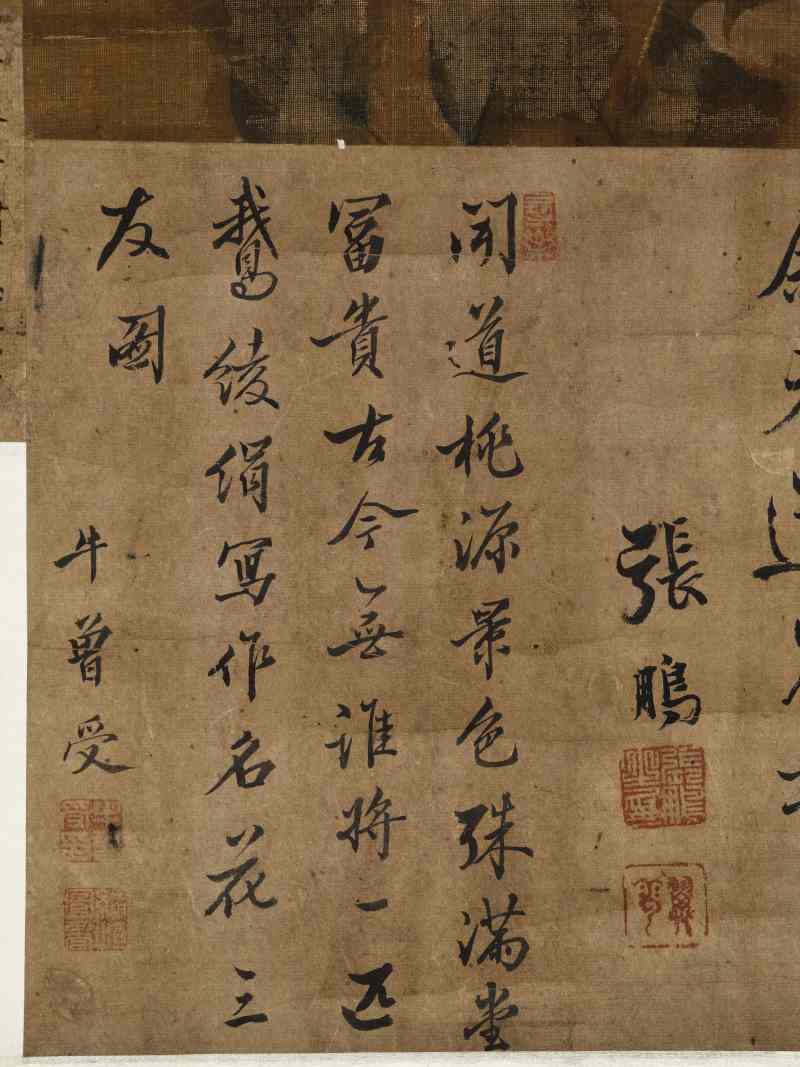 張鵬
聞道桃源景色殊滿堂
冨貴古今無誰將一匹
鵞綾絹寫作名花三
友圖
牛曾受